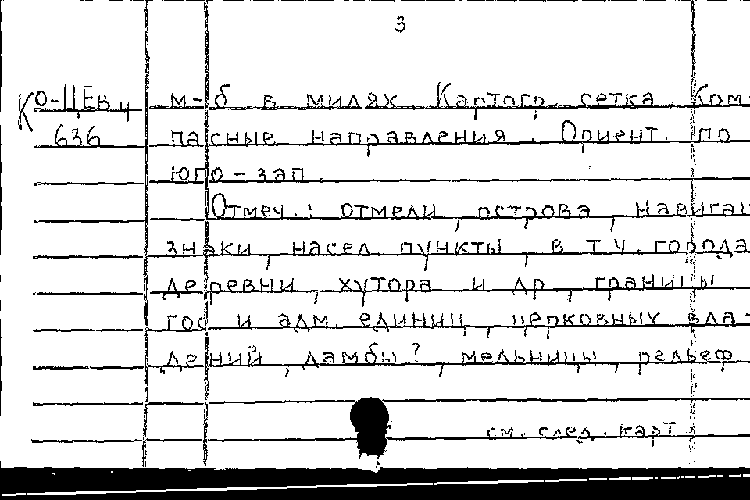 3
Ко-Цев 4 м-б в милях. Картогр. сетка. Ком-
636 пасные направления. Ориент. по
юго-зап.
Отмеч.: отмели, острова, навигац
знаки, насел. пункты, в т.ч. города
деревни, хутора и др, границы
гос и адм. единиц, церковных вла-
дений, дамбы?, мельницы, рельеф
см. след. карт.